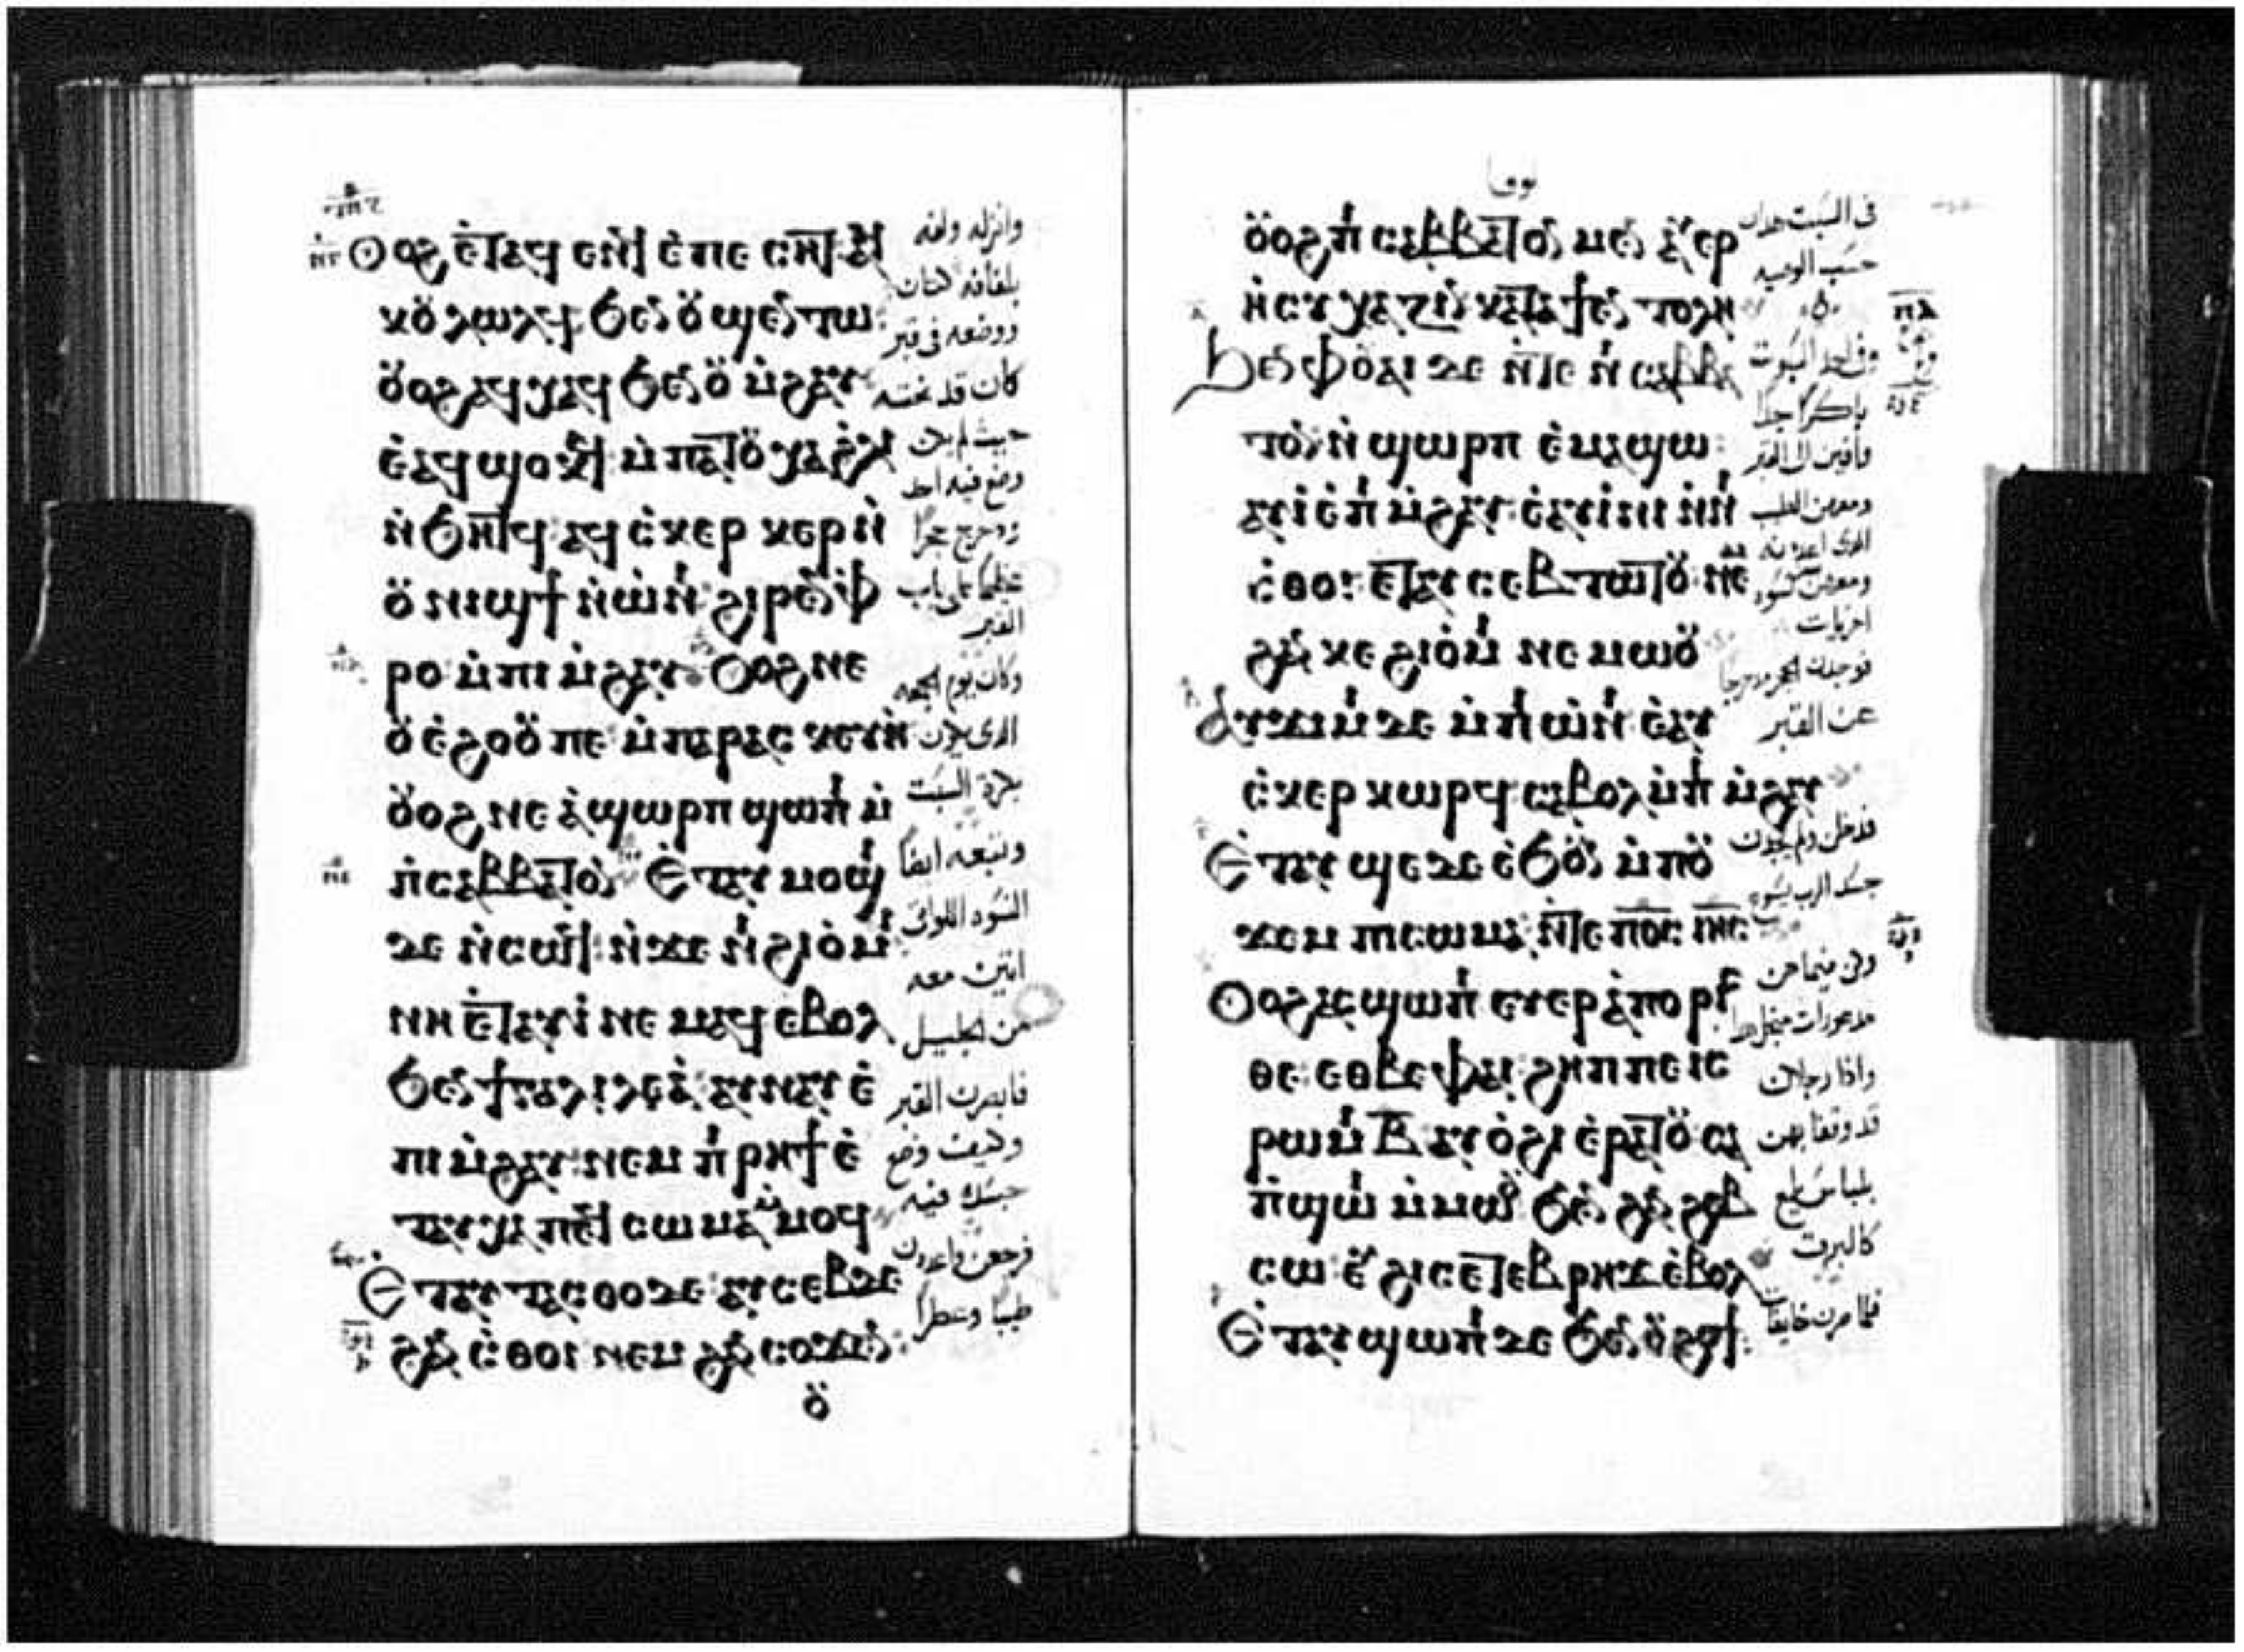 Ⲟⲩⲟϩ ⲉ̀ⲧⲁϥ ⲉⲛϥ ⲉ̀ⲡⲉⲥⲏⲧ ⲁϥ
ⲕⲟⲩⲗⲱⲗϥ ϧⲉⲛ ⲟⲩϣⲉⲛⲧⲱ:
ⲟⲩⲟϩ ⲁϥⲭⲁϥ ϧⲉⲛ ⲟⲩⲙ̀ϩⲁⲩ
ⲉ̀ⲁϥϣⲟⲕϥ ⲙ̀ⲡⲁⲧⲟⲩⲭⲁ ϩ̀ⲗⲓ
ⲛ̀ϧⲏⲧϥ ⲁϥⲥ̀ⲕⲉⲣⲕⲉⲣ ⲛ̀
ⲟⲩⲛⲓϣϯ ⲛ̀ⲱ̀ⲛⲓ ϩⲓⲣⲉⲛ ⲫ̀
ⲣⲟ ⲙ̀ⲡⲓⲙ̀ϩⲁⲩ Ⲟⲩⲟϩ ⲛⲉ
ⲟⲩⲉ̀ϩⲟⲟⲩ ⲡⲉ ⲙ̀ⲡⲁⲣⲁⲥⲕⲉⲩⲏ
ⲟⲩⲟϩ ⲛⲉ ⲁ̀ϣⲱⲣⲡ ϣⲱⲡⲓ ⲙ̀
ⲡⲓⲥⲁⲃⲃⲁⲧⲟⲛ Ⲉ̀ⲧⲁⲩⲙⲟϣⲓ
ⲇⲉ ⲛ̀ⲥⲱϥ ⲛ̀ϫⲉ ⲛⲓϩⲓⲟ̀ⲙⲓ:
ⲛⲏ ⲉ̀ⲧⲁⲩⲓ̀ ⲛⲉⲙⲁϥ ⲉⲃⲟⲗ
ϧⲉⲛ ϯⲅⲁⲗⲓⲗⲉⲁ̀ ⲁⲩⲛⲁⲩ ⲉ̀
ⲡⲓⲙ̀ϩⲁⲩ ⲛⲉⲙ ⲡⲓⲣⲏϯ ⲉ̀
ⲧⲁⲩⲭⲁ ⲡⲉϥⲥⲱⲙⲁ ⲙ̀ⲙⲟϥ
Ⲉ̀ⲧⲁⲩⲧⲁⲥⲑⲟ ⲇⲉ ⲁⲩⲥⲉⲃⲧⲉ
ϩⲁⲛⲥ̀ⲑⲟⲓ ⲛⲉⲙ ϩⲁⲛⲥⲟϫⲉⲛ:
ⲟⲩ
وانزله ولفه
بلفافه كتان
ووضعه فى قبر
كان قد نحته
حيث لم يكن
وضع فيه احد
ودحرج حجرًا
عظيمًا على باب
القبر
وكان يوم الجمعه
الذى يكون
بكرة السبت
وتبعه ايضًا
النسوه اللواتى
اتين معه
من الجليل
فابصرن القبر
وكيف وضع
جسده فيه
فرجعن واعددن
طيبًا وعطرًا
لوقا
ⲟⲩⲟϩ ⲡⲓⲥⲁⲃⲃⲁⲧⲟⲛ ⲙⲉⲛ ⲁⲩⲉⲣ
ⲏ̀ⲥⲩⲭⲁⲍⲓⲛ ⲕⲁⲧⲁ ϯⲉⲛⲧⲟⲗⲏ
Ϧⲉⲛ ⲫⲟⲩⲁⲓ ⲇⲉ ⲛ̀ⲧⲉ ⲛⲓⲥⲁⲃⲃⲁ
ⲧⲟⲛ ⲛ̀ϣⲱⲣⲡ ⲉ̀ⲙⲁϣⲱ:
ⲁⲩⲓ̀ ⲉ̀ⲡⲓⲙ̀ϩⲁⲩ ⲉ̀ⲁⲩⲓ̀ⲛⲓ ⲛ̀ⲛⲓ
ⲥ̀ⲑⲟⲓ ⲉ̀ⲧⲁⲩⲥⲉⲃⲧⲱⲧⲟⲩ ⲛⲉⲙ
ϩⲁⲛ ⲕⲉϩⲓⲟ̀ⲙⲓ ⲛⲉⲙⲱⲟⲩ
Ⲁⲩϫⲓⲙⲓ ⲇⲉ ⲙ̀ⲡⲓⲱ̀ⲛⲓ ⲉ̀ⲁⲩ
ⲥ̀ⲕⲉⲣⲕⲱⲣϥ ⲥⲁⲃⲟⲗ ⲙ̀ⲡⲓⲙ̀ϩⲁⲩ
Ⲉ̀ⲧⲁⲩϣⲉ ⲇⲉ ⲉ̀ϧⲟⲩⲛ ⲙ̀ⲡⲟⲩ
ϫⲉⲙ ⲡⲓⲥⲱⲙⲁ ⲛ̀ⲧⲉ ⲡⲟ̅ⲥ̅ ⲓⲏ̅ⲥ̅
Ⲟⲩⲟϩ ⲁⲥϣⲱⲡⲓ ⲉⲩⲉⲣⲁ̀ⲡⲟⲣⲓⲥ
ⲑⲉ ⲉⲑⲃⲉ ⲫⲁⲓ ϩⲏⲡⲡⲉ ⲓⲥ
ⲣⲱⲙⲓ ⲃ̅ ⲁⲩⲟ̀ϩⲓ ⲉ̀ⲣⲁⲧⲟⲩ ⲥⲁ
ⲡ̀ϣⲱⲓ ⲙ̀ⲙⲱⲟⲩ ϧⲉⲛ ϩⲁⲛ ϩⲉⲃ
ⲥⲱ ⲉⲩϩⲓⲥⲉⲧⲉⲃⲣⲏϫ ⲉ̀ⲃⲟⲗ
Ⲉ̀ⲧⲁⲩϣⲱⲡⲓ ⲇⲉ ϧⲉⲛ ⲟⲩϩⲟϯ:
فى السبت هدان
حسب الوصيه
وفى احد السبوت
باكرًا جدًا
وافين الى القبر
ومعهن الطيب
الذى اعددنه
ومعهن نسوه
اخريات
فوجدن الحجر مدحرجًا
عن القبر
فدخلن ولم يجدن
جسد الرب يسوع
وفيما هن
واذا رجلان
قد وقفا بهن
بلباس يلمع
كالبرق
فلما صرن خايفات